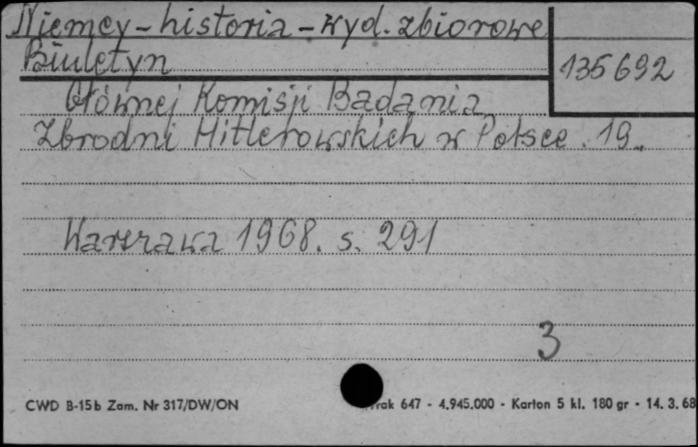 Niemcy - historia - wyd. zbiorowe
Biuletyn
135692
Głównej Komisji Badania
Zbrodni Hitlerowskich w Polsce. 19.
Warszawa 1968. s. 291
3
CWD B-15b Zam. Nr 317/DW/ON
rak 647 - 4.945.000 - Karton 5 kl. 180 gr - 14. 3. 68